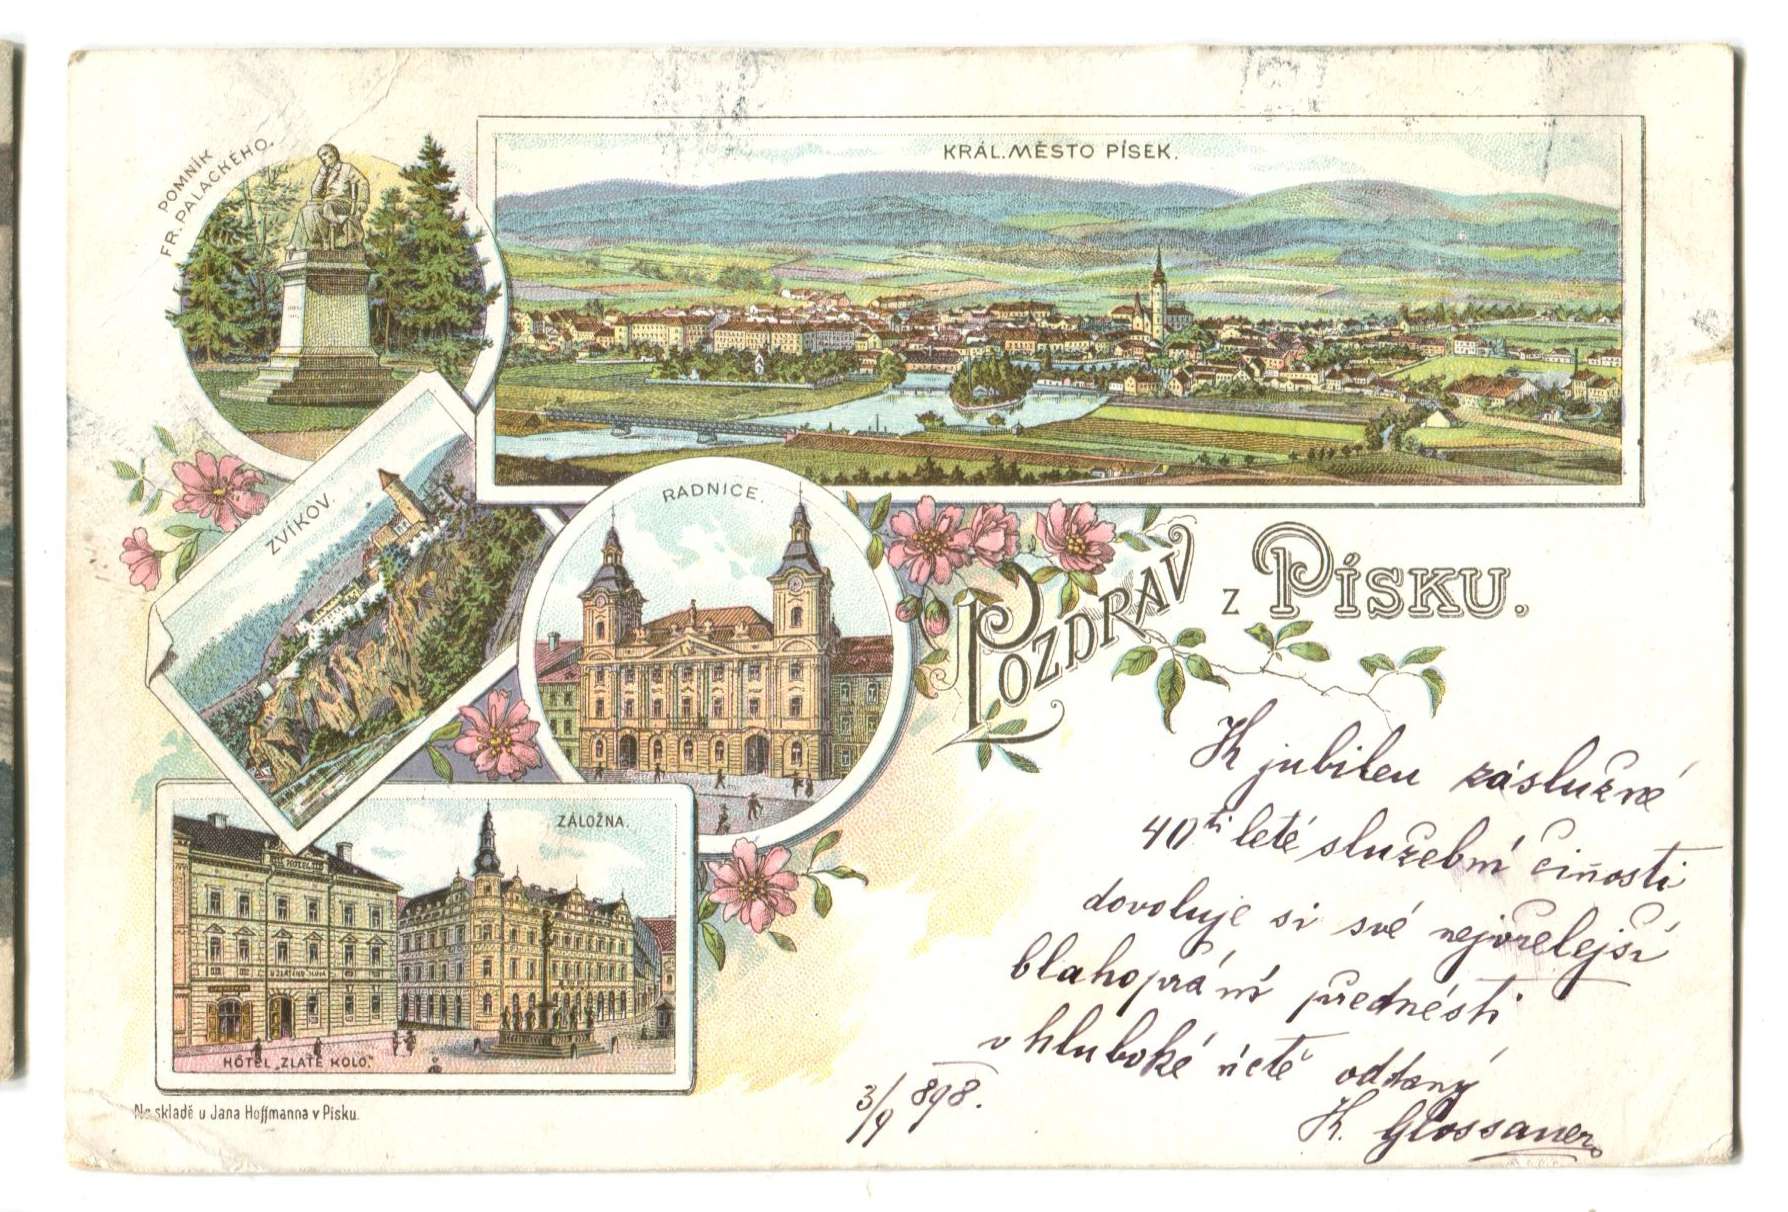 POMNÍK
FR. PALACKÉHO.
KRÁL. MĚSTO PÍSEK.
ZVÍKOV.
RADNICE.
POZDRAV z PÍSKU.
ZÁLOŽNA.
HOTEL
HÔTEL „ZLATÉ KOLO."
Na skladě u Jana Hoffmanna v Písku.
K jubileu záslužné
40ti leté služební činosti
dovoluje si své nejvřelejší
blahopřání přednésti
v hluboké úctě oddaný
3/9 898.
K. Glossauer